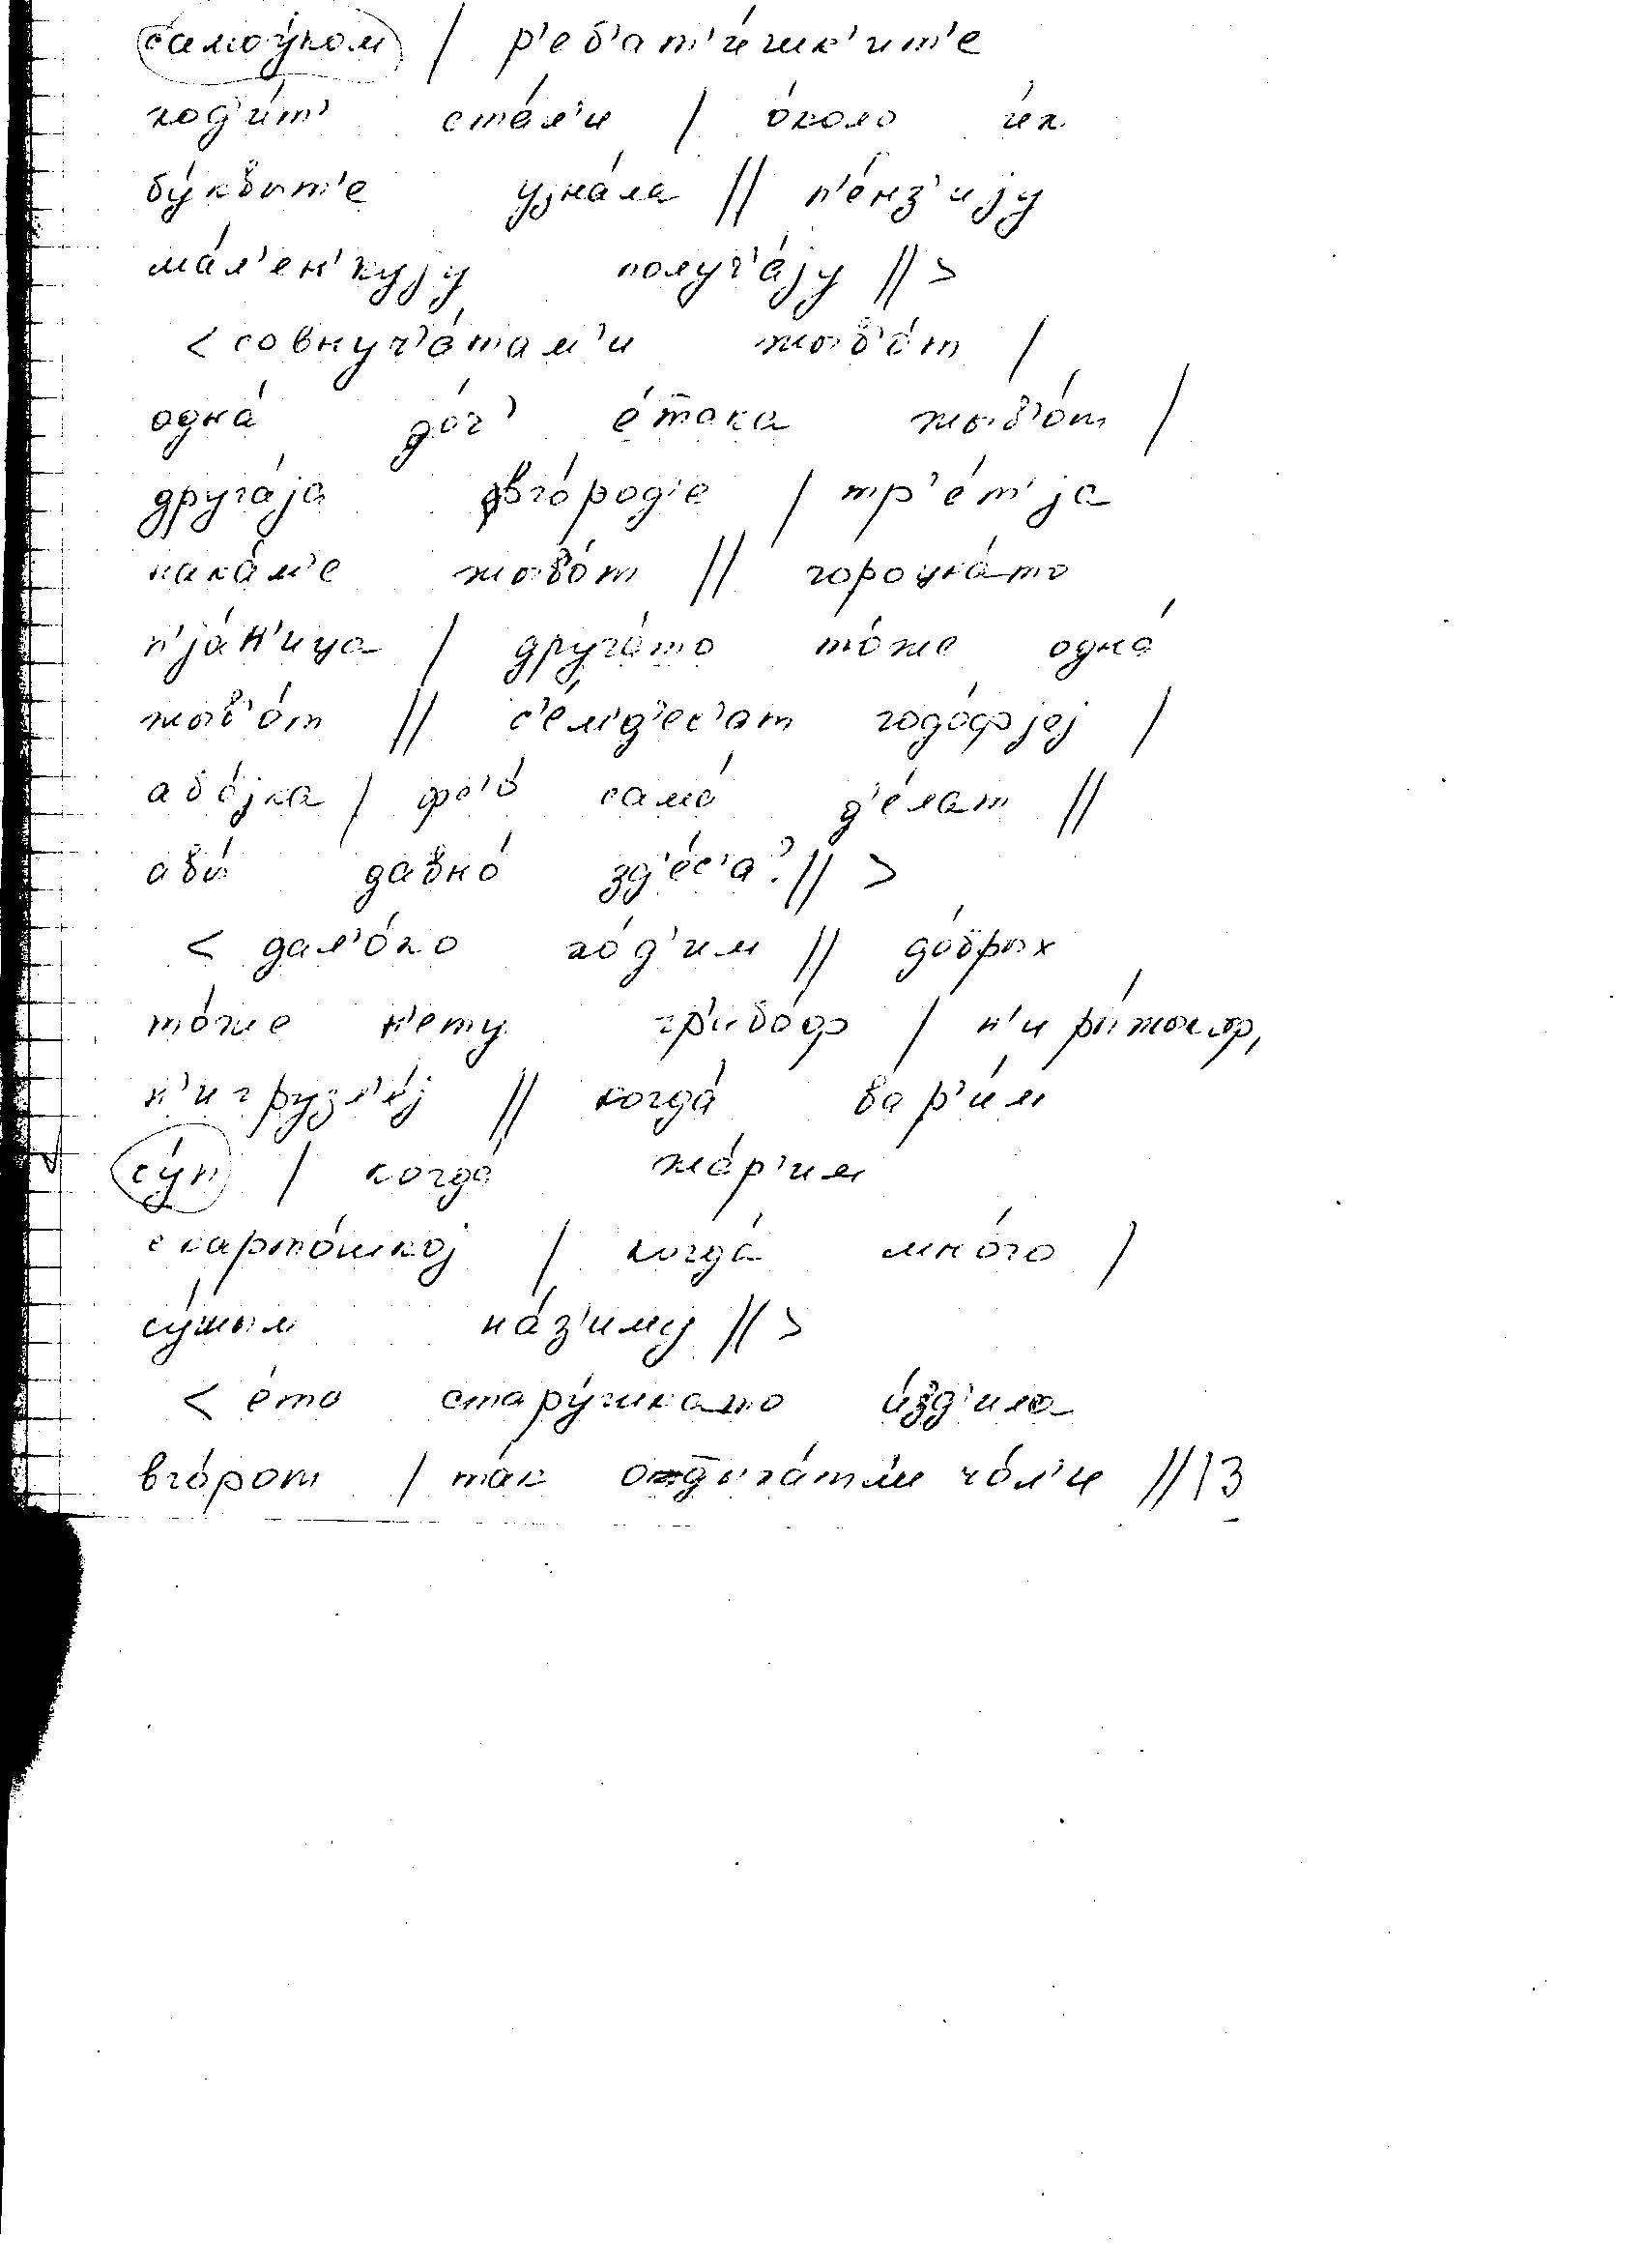 самоу́ком / р'еб'ат'и́шк'ит'е
ход'и́т' ста́л'и / о́коло и́х
бу́квыт'е узна́ла // п'е́нз'иjу
ма́л'ен'куjу получ'а́jу //>
< совнуч'а́там'и жыв'о́т /
одна́ до́ч' е́така жыв'о́т /
друга́jа вго́род'е / тр'е́т'jа
нака́м'е жыво́т // гороцка́то
п'jа́н'ица / друга́то то́же одна́
жыв'о́т // с'е́м'д'ес'ат годо́фjеj /
або́jка / фс'о́ сама́ д'е́лат //
авы́ давно́ зд'е́с'а? // >
< дал'о́ко хо́д'им // до́брых
то́же н'ету гр'ибо́ф / н'и ры́жыкоф,
н'и грузд'е́j // когда́ вар'и́м
су́п / когда́ жа́р'им
скарто́шкоj / когда́ мно́го /
су́шым на́з'иму //>
< е́то стару́шкато и́зд'ила
вго́рот / та́к отдыха́тл'и чо́л'и // 13